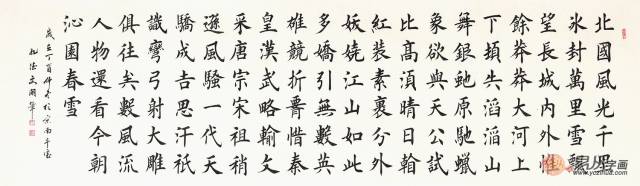 北國風光千里
冰封萬里雪飄
望長城內外惟
餘莽莽大河上
下頓失滔滔山
舞銀蛇原馳蠟
象欲與天公試
比高須晴日看
紅裝素裹分外
妖嬈江山如此
多嬌引無數英
雄競折腰惜秦
皇漢武略輸文
采唐宗宋祖稍
遜風騷一代天
驕成吉思汗祇
識彎弓射大雕
俱往矣數風流
人物還看今朝
沁園春雪
歲在丁酉仲冬於京南
易从字画
www.yczihua.com